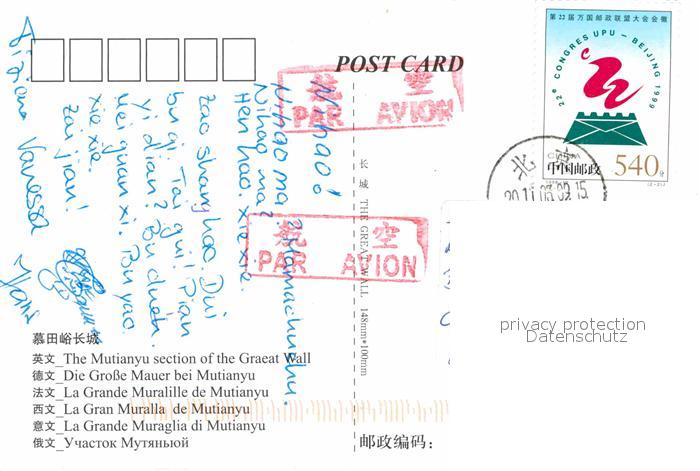 POST CARD
第22届万国邮政联盟大会会徽
22e CONGRES UPU - BEIJING 1999
中国邮政
540分
北
航 空
PAR AVION
航 空
PAR AVION
Nihao!
Nihao ma?
Nihao ma?
Hen hao. xie xie
zao shang hao. Dui
bu qi. Tai gui! Pian
yi dian? Bu duan.
Mei guan xi. Bu yao.
xie xie.
zai jian!
Vanessa
长城 THE GREAT WALL 148mm*100mm
privacy protection
Datenschutz
慕田峪长城
英文_The Mutianyu section of the Graeat Wall
德文_Die Große Mauer bei Mutianyu
法文_La Grande Muralille de Mutianyu
西文_La Gran Muralla de Mutianyu
意文_La Grande Muraglia di Mutianyu
俄文_Участок Мутяньюй
邮政编码: